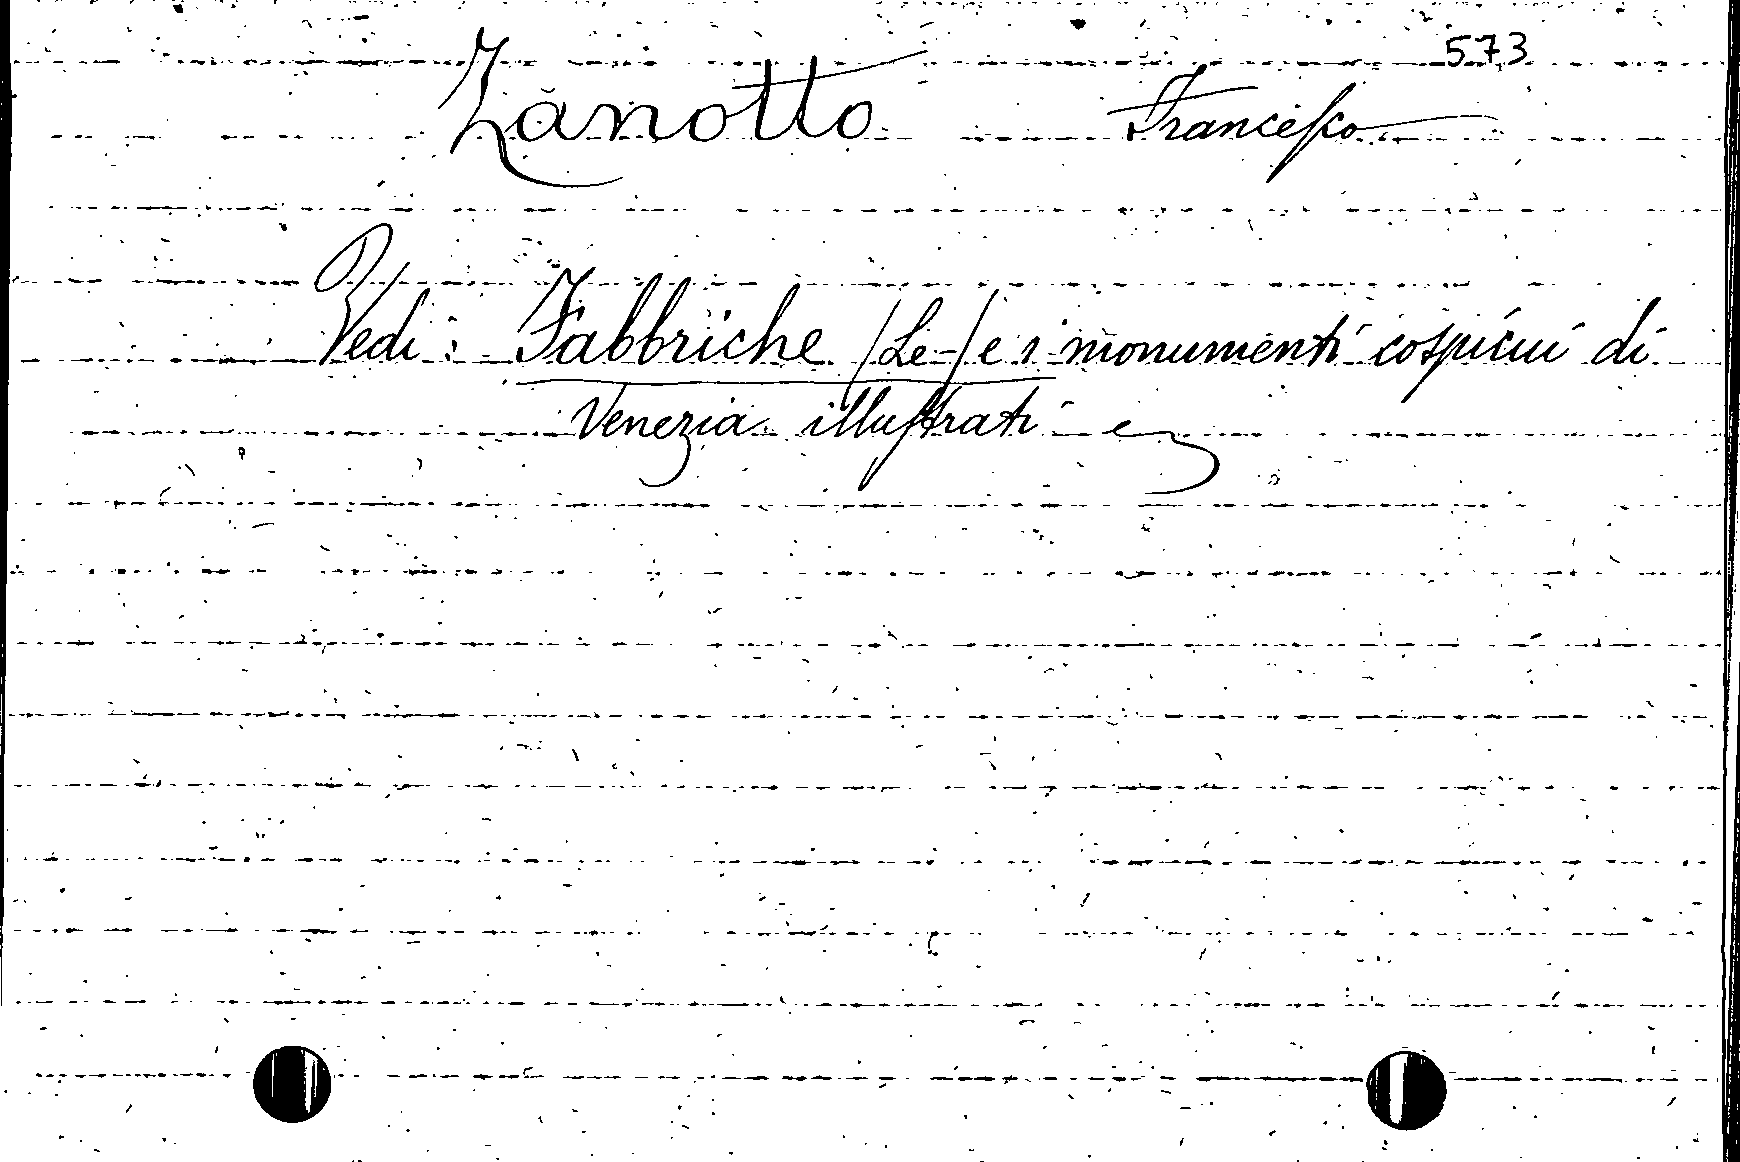 573
Zanotto Francesco
Vedi: Fabbriche (Le-) e i monumenti cospicui di
Venezia illustrati